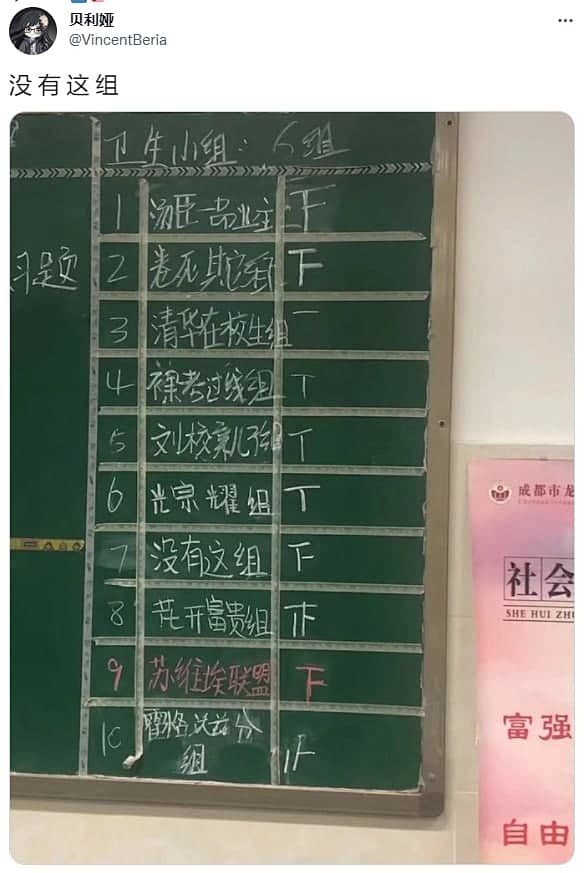 贝利娅
@VincentBeria
没有这组
卫生小组: 6组
习题
1 汤臣一品业主
2 卷死其它组
3 清华在校生组
4 裸考过线组
5 刘校亲儿子组
6 光宗耀组
7 没有这组
8 花开富贵组
9 苏维埃联盟
10 霍格沃兹分组
成都市龙
社会
SHE HUI ZHU
富强
自由